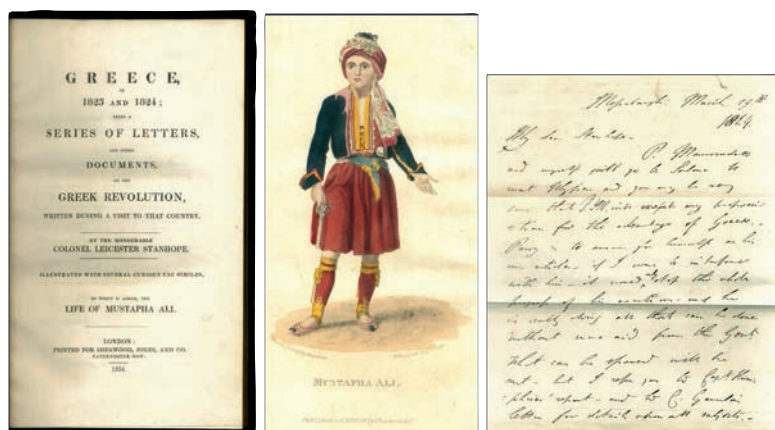 GREECE,
IN
1823 AND 1824;
BEING A
SERIES OF LETTERS,
AND OTHER
DOCUMENTS,
ON THE
GREEK REVOLUTION,
WRITTEN DURING A VISIT TO THAT COUNTRY.
BY THE HONOURABLE
COLONEL LEICESTER STANHOPE.
ILLUSTRATED WITH SEVERAL CURIOUS FAC SIMILES.
TO WHICH IS ADDED, THE
LIFE OF MUSTAPHA ALI.
LONDON:
PRINTED FOR SHERWOOD, JONES, AND CO.
PATERNOSTER-ROW.
1824.
MUSTAPHA ALI.
March 19th
1824.
My dear Stanhope.
P. Mavrocordato
and myself will go to Salona to
meet Ulysses and you may be very
sure that P. M. will accept any
for the advantage of Greece.
Parry is to answer for himself on his
own articles. if I were to interfere
with him it would stop the whole
progress of his and he
is really doing all that can be done
without more aid from the Govt
What can be spared will be
sent. but I refer you to Capt Hum
phries' report and to C. Gamba's
letter for details upon all subjects.